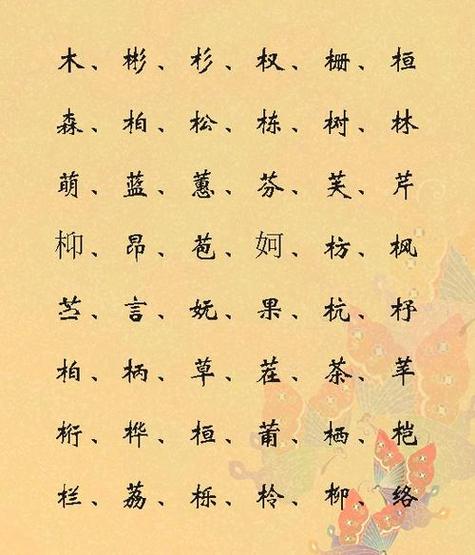 木、彬、杉、杈、栅、桓
森、柏、松、栋、树、林
萌、蓝、蕙、芬、芙、芹
枊、昂、苞、妸、枋、枫
苎、言、妩、果、杭、杼
柏、柄、草、茬、茶、莘
桁、桦、桓、莆、栖、桤
栏、荔、栎、柃、柳、络